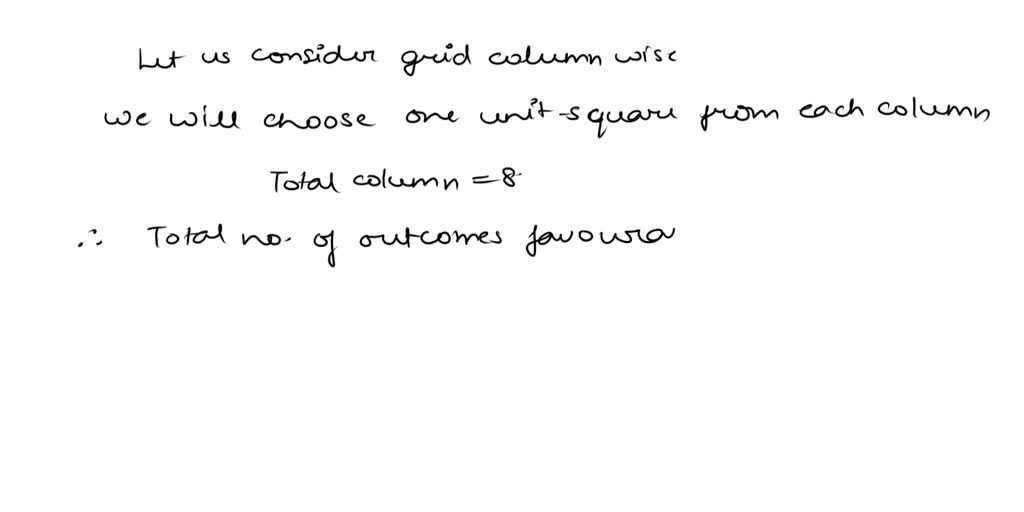 Let us consider grid column wise
we will choose one unit-square from each column
Total column = 8
∴ Total no. of outcomes favoura